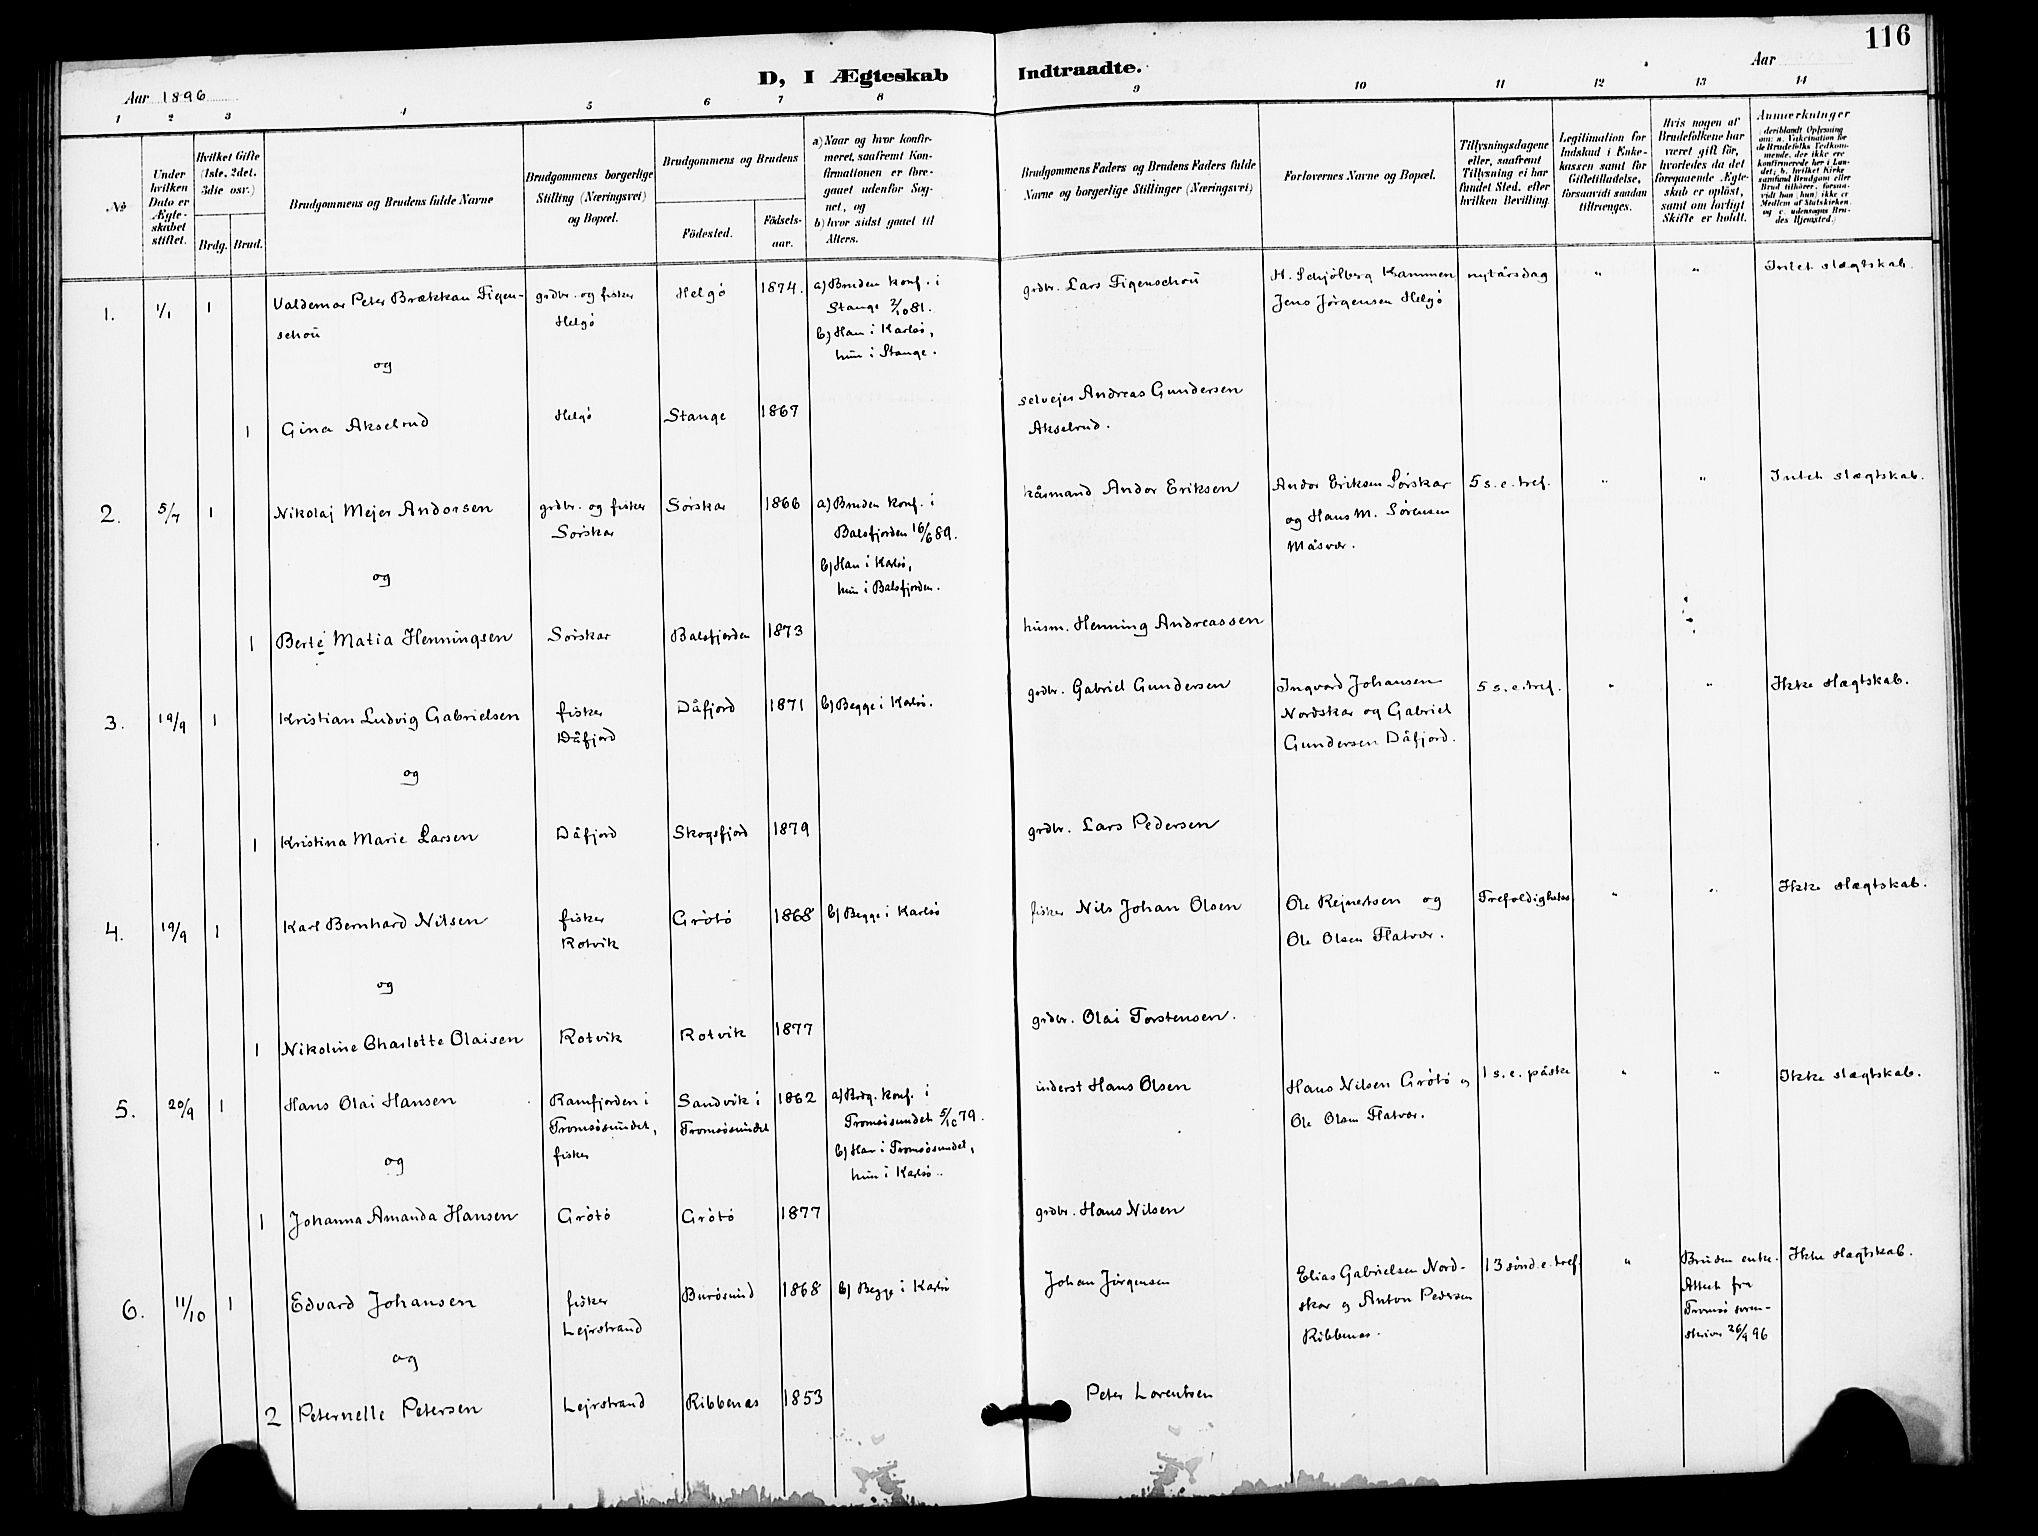 116
D, I Ægteskab Indtraadte.
Aar 1896
Aar
1 2 3 4 5 6 7 8 9 10 11 12 13 14
No
Under hvilken Dato er Ægteskabet stiftet.
Hvilket Gifte (1ste, 2det, 3die osv.)
Brdg. Brud.
Brudgommens og Brudens fulde Navne
Brudgommens borgerlige Stilling (Næringsvei) og Bopæl.
Brudgommens og Brudens
Födested.
Födselsaar.
a) Naar og hvor konfirmeret, saafremt Konfirmationen er foregaaet udenfor Sognet, og
b) hvor sidst gaaet til Alters.
Brudgommens Faders og Brudens Faders fulde Navne og borgerlige Stillinger (Næringsvei)
Forlovernes Navne og Bopæl.
Tillysningsdagene eller, saafremt Tillysning ei har fundet Sted, efter hvilken Bevilling.
Legitimation for Indskud i Enkekassen samt for Giftetilladelse, forsaavidt saadan tiltrænges.
Hvis nogen af Brudefolkene har været gift för, hvorledes da det foregaaende Ægteskab er oplöst, samt om lovligt Skifte er holdt.
Anmærkninger
(deriblandt Oplysning om: a. Vakcination for de Brudefolks Vedkommende, der ikke ere konfirmerede her i Landet; b. hvilket Kirkesamfund Brudgom eller Brud tilhörer, forsaavidt han (hun) ikke er Medlem af Statskirken, og c. udensogns Brudes Hjemsted.)
1. 1/1 1 Valdemar Peter Brækkan Figenschou
grdbr. og fisker
Helgö
Helgö 1874.
a) Bruden konf. i
Stange 2/10 81.
b) Han i Karlsö,
hun i Stange.
grdbr. Lars Figenschou
H. Schjölberg Kammen
Jens Jörgensen Helgö
nytårsdag " " Intet slægtskab.
og
1 Gina Akselrud
Helgö Stange 1867
selvejer Andreas Gundersen
Akselrud.
2. 5/7 1 Nikolaj Mejer Andorsen
grdbr. og fisker
Sörskar
Sörskar 1866
a) Bruden konf. i
Balsfjorden 16/6 89.
b) Han i Karlsö,
hun i Balsfjorden.
Andor Eriksen
Andor Eriksen Sörskar
og Hans M. Sörensen
Måsvær.
5 s. e. tref. " " Intet slægtskab.
og
1 Berte Matia Henningsen
Sörskar Balsfjorden 1873
husm. Henning Andreassen
3. 19/9 1 Kristian Ludvig Gabrielsen
fisker
Dåfjord
Dåfjord 1871 b) Begge i Karlsö.
grdbr. Gabriel Gundersen
Ingvard Johansen
Nordskar og Gabriel
Gundersen Dåfjord.
5 s. e. tref. " " Ikke slægtskab.
og
1 Kristina Marie Larsen
Dåfjord Skogsfjord 1879
grdbr. Lars Pedersen
4. 19/9 1 Karl Bernhard Nilsen
fisker
Rotvik
Grötö 1868 b) Begge i Karlsö
fisker Nils Johan Olsen
Ole Rejnertsen og
Ole Olsen Flatvær.
Trefoldighetss " " Ikke slægtskab.
og
1 Nikoline Charlotte Olaisen
Rotvik Rotvik 1877
grdbr. Olai Torstensen.
5. 20/9 1 Hans Olai Hansen
Ramfjorden i
Tromsösundet,
fisker
Sandvik i
Tromsösundet
1862
a) Brdg. konf. i
Tromsösundet 5/10 79.
b) Han i Tromsösundet,
hun i Karlsö.
inderst Hans Olsen
Hans Nilsen Grötö og
Ole Olsen Flatvær.
1 s. e. påske " " Ikke slægtskab.
og
1 Johanna Amanda Hansen
Grötö Grötö 1877
grdbr. Hans Nilsen
6. 11/10 1 Edvard Johansen
fisker
Lejrstrand
Burösund 1868 b) Begge i Karlsö
Johan Jörgensen
Elias Gabrielsen Nordskar
og Anton Pedersen
Ribbenæs.
13 sönd. e. tref. "
Bruden enke.
Attest fra
Tromsö sorenskriver
26/9 96
Ikke slægtskab.
og
2 Peternelle Petersen
Lejrstrand Ribbenæs 1853
Peter Lorentsen